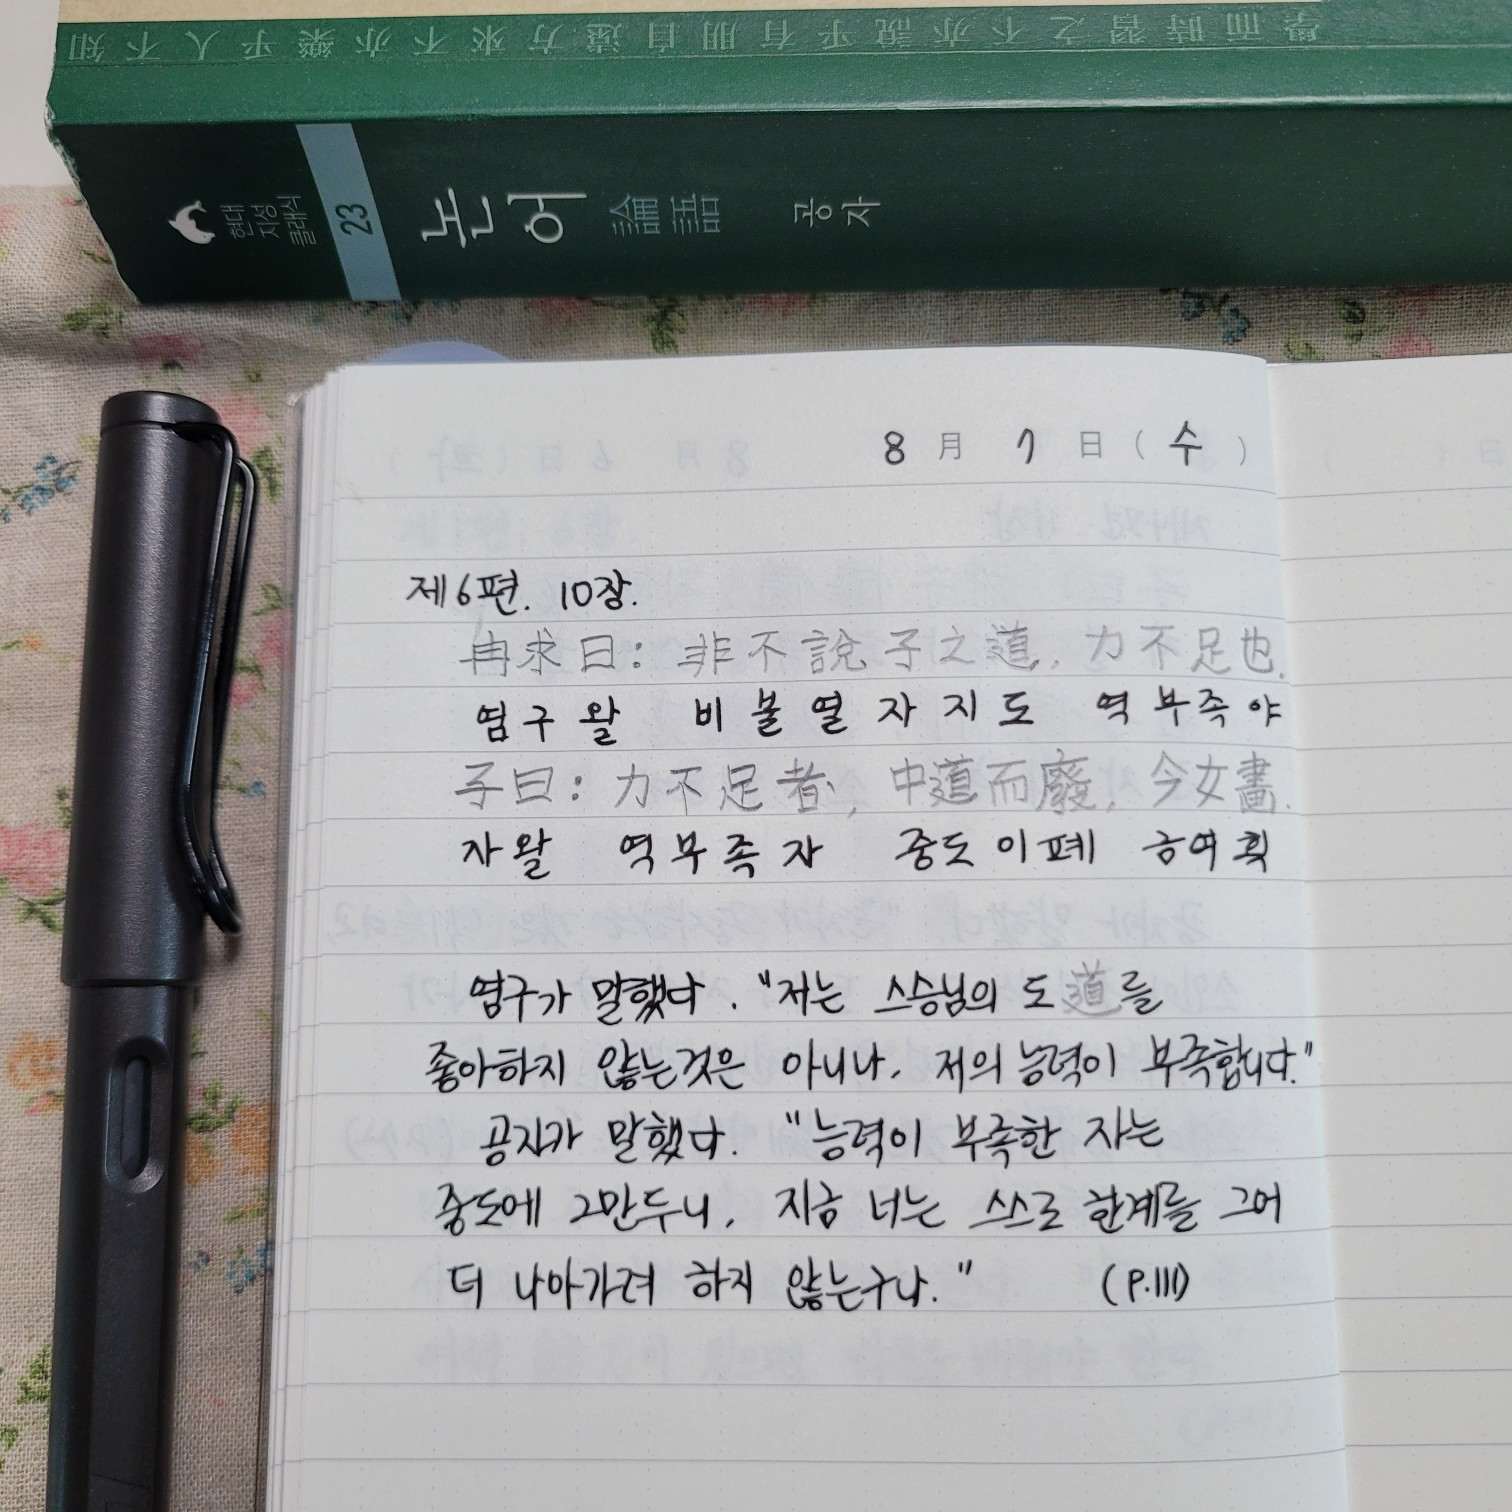 學而時習之不亦說乎有朋自遠方來不亦樂乎人不知
현대
지성
클래식
23
논어 論語 공자
8 月 7 日 ( 수 )
제6편. 10장.
冉求曰: 非不說子之道, 力不足也.
염구왈 비불열자지도 역부족야
子曰: 力不足者, 中道而廢, 今女畫.
자왈 역부족자 중도이폐 금여획
염구가 말했다. "저는 스승님의 도道를
좋아하지 않는것은 아니나, 저의 능력이 부족합니다."
공자가 말했다. "능력이 부족한 자는
중도에 그만두니, 지금 너는 스스로 한계를 그어
더 나아가려 하지 않는구나." (P.111)